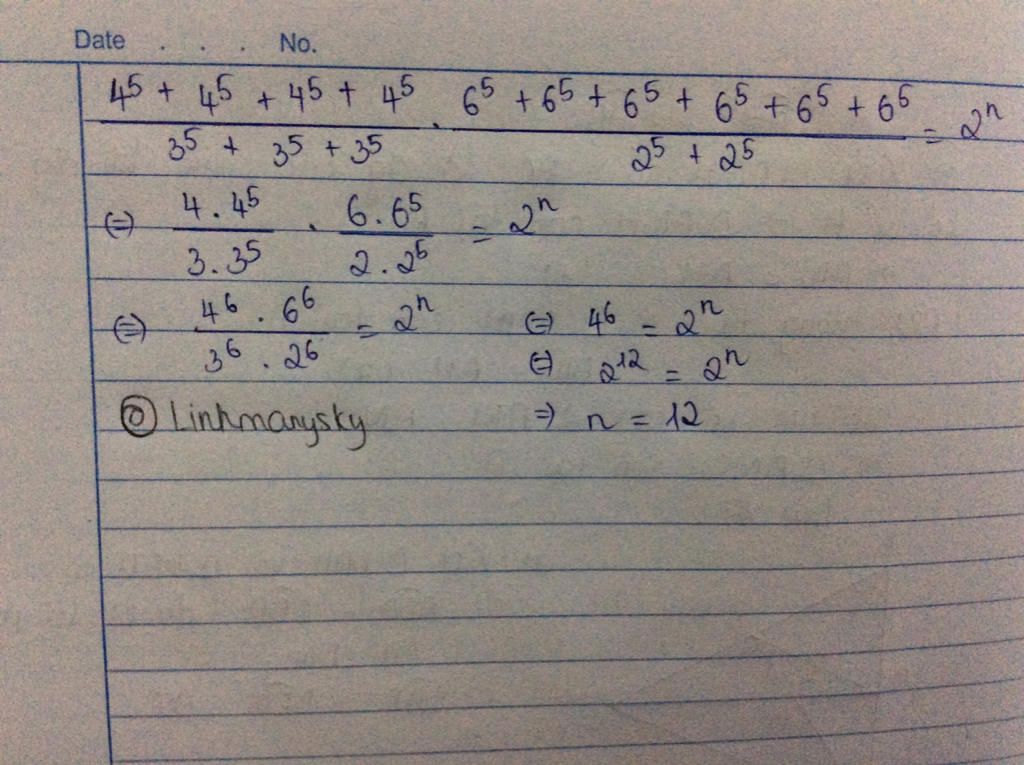 Date . . . No.
4⁵ + 4⁵ + 4⁵ + 4⁵ / 3⁵ + 3⁵ + 3⁵ . 6⁵ + 6⁵ + 6⁵ + 6⁵ + 6⁵ + 6⁵ / 2⁵ + 2⁵ = 2ⁿ
(=) 4.4⁵ / 3.3⁵ . 6.6⁵ / 2.2⁵ = 2ⁿ
(=) 4⁶ . 6⁶ / 3⁶ . 2⁶ = 2ⁿ (=) 4⁶ = 2ⁿ
(=) 2¹² = 2ⁿ
© Linhmarysky =) n = 12